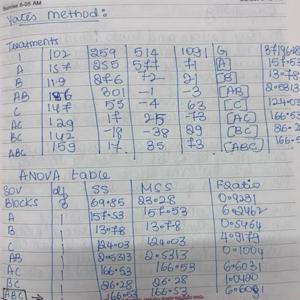 Sunrise 6-05 AM
Yates method:
Treatments
1 102 259 514 1091 G
A 157 255 577 71 [A] 157.53
B 119 276 -72 21 [B] 13.78
AB 301 -1 -3 [AB] 2.5313
C 147 55 -4 63 [C] 124.03
AC 129 17 25 -73 [AC] 166.53
BC 142 -18 -38 29 [BC]
ABC 159 17 35 73 [ABC] 166.5
ANOVA table
SOV df SS MSS F Ratio
Blocks 3 69.85 23.28 0.9231
A 1 157.53 157.53 6.2462
B 1 13.78 13.78 0.5464
C 1 124.03 124.03 4.9179
AB 1 2.5313 2.5313 0.1004
AC 1 166.53 166.53 6.6031
BC 1 26.28 26.28 1.0420
ABC 1 166.53 166.53